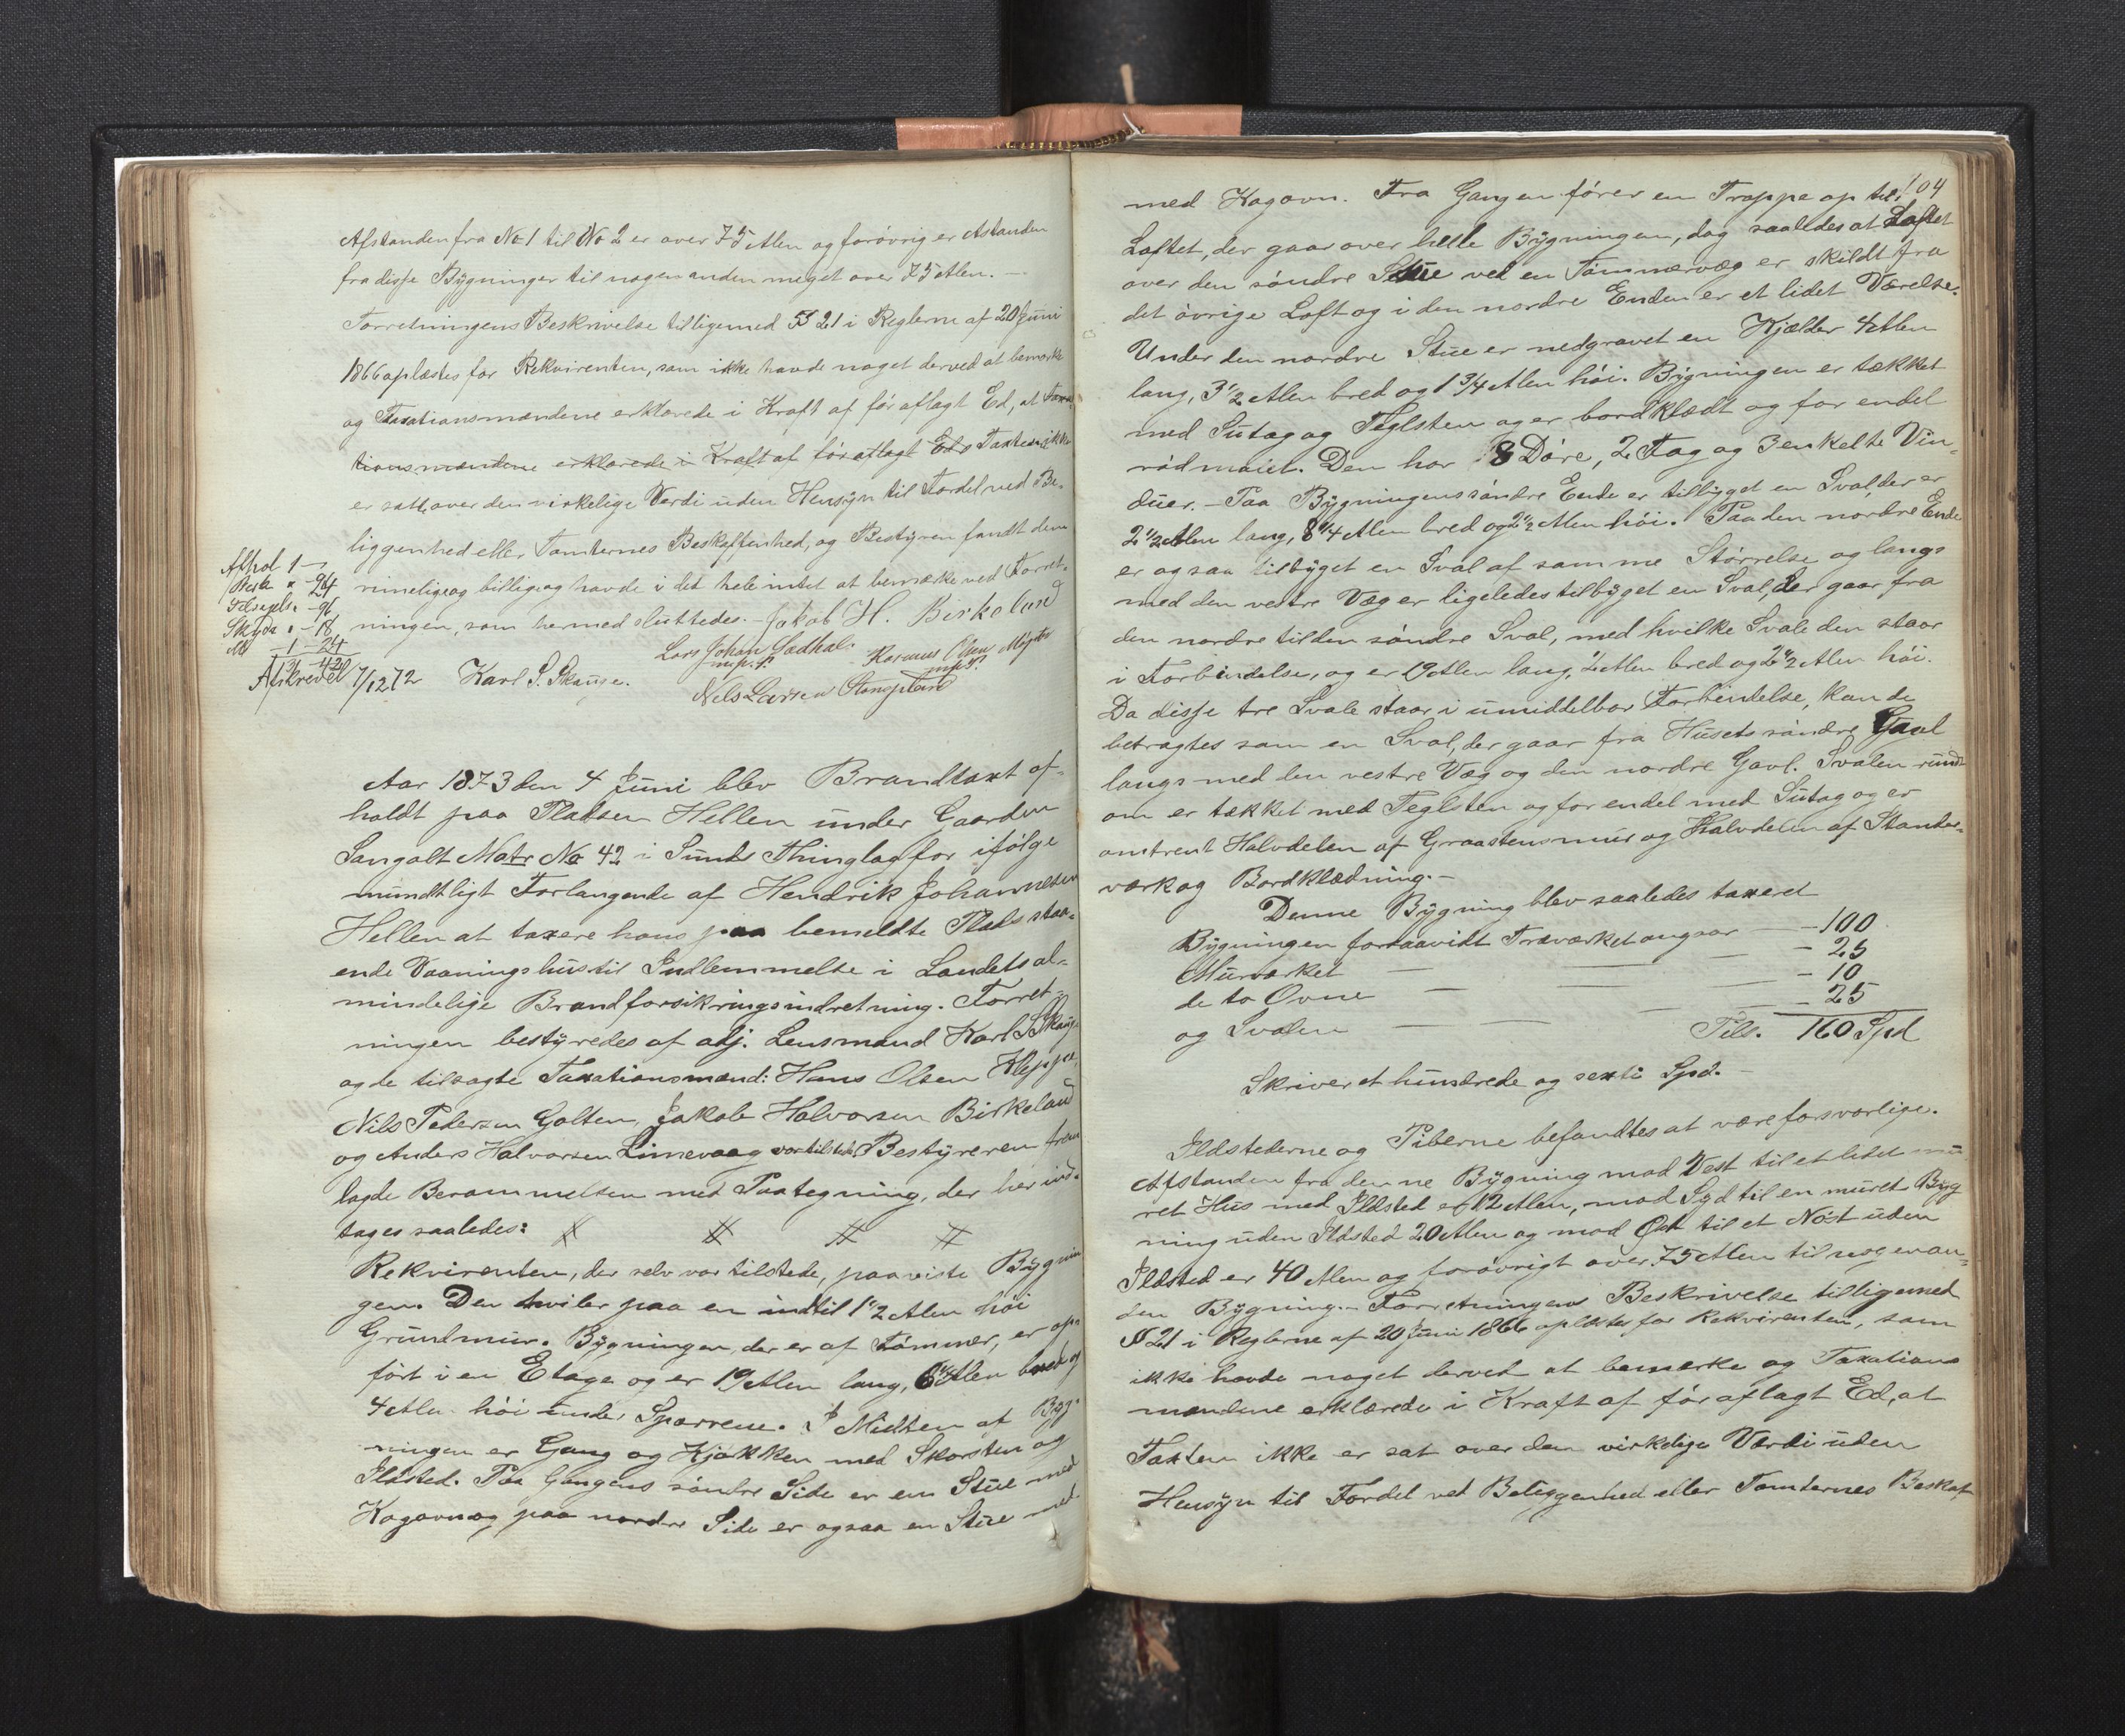 Afstanden fra No 1 til No 2 er over 75 Alen og forøvrig er Astanden
fra disse Bygninger til nogen anden meget over 75 Alen. —
Forretningens Beskrivelse tilligemed § 21 i Reglerne af 20 Juni
1866 oplæstes for Rekvirenten, som ikke havde noget derved at bemærke
og Taxationsmændene erklærede i Kraft af før aflagt Ed, at Taxa
tionsmændene erklærede i Kraft af før aflagt Ed at Taxten ikke
er satt over den virkelige Værdi uden Hensyn til Fordel ved Be-
liggenhed eller Tomternes Beskaffenhed, og Bestyren fandt den
rimelig og billig og havde i det hele intet at bemærke ved Forret-
ningen, som hermed sluttedes. — Jakob H. Birkeland
Afhol 1 —
Besk " - 24
Tilsigels. - 96
Skyds " - 18
1 - 24
Afskrevet 7/12 72 Karl S. Skauge.
Lars Johan
m. p. P.
Rasmus Olsen
m. p. P.
Nels Larsen
Aar 1873 den 4 Juni blev Brandtaxt af-
holdt paa Pladsen Hellen under Gaarden
Sangolt Matr No 42 i Sunds Thinglag for ifølge
mundtligt Forlangende af Hendrik Johannesen
Hellen at taxere hans paa bemeldte Plads staa-
ende Vaaningshus til Indlemmelse i Landets al-
mindelige Brandforsikringsindretning. Forret-
ningen bestyredes af adj. Lensmand Karl S. Skauge
og de tilsagte Taxationsmænd: Hans Olsen Kleppe,
Nils Pedersen Golten, Jakob Halvorsen Birkeland
og Anders Halvorsen Limevaag var tilstede. Bestyreren frem
lagde Berammelsen med Paategning, der her ind-
tages saaledes: # # # #
Rekvirenten, der selv var tilstede, paaviste Bygnin
gen. Den hviler paa en indtil 1 1/2 Alen høi
Grundmur. Bygningen, der er af Tømmer, er op-
ført i en Etage og er 19 Alen lang, 6 1/4 Alen bred og
4 Alen høi under Sparrene. I Midten af Byg-
ningen er Gang og Kjøkken med Skorsten og
Ildsted. Paa Gangens søndre Side er en Stue med
Kogovn og paa nordre Side er ogsaa en Stue med
104
med Kogovn. Fra Gangen fører en Trappe op til
Loftet, der gaar over hele Bygningen, dog saaledes at Loftet
over den søndre Stue ved en Tømmervæg er skildt fra
det øvrige Loft og i den nordre Enden er et lidet Værelse.
Under den nordre Stue er nedgravet en Kjælder 4 Alen
lang, 3 1/2 Alen bred og 1 3/4 Alen høi. Bygningen er tækket
med Sutag og Teglsten og er bordklædt og for endel
rødmalet. Den har 8 Døre, 2 Fag og 3 enkelte Vin-
duer. — Paa Bygningens søndre Ende er tilbyget en Sval, der er
2 1/2 Alen lang, 8 1/4 Alen bred og 2 1/2 Alen høi. Paa den nordre Ende
er ogsaa tilbyget en Sval af samme Størrelse og langs
med den vestre Væg er ligeledes tilbyget en Sval, der gaar fra
den nordre til den søndre Sval, med hvilke Svale den staar
i Forbindelse, og er 19 Alen lang, 2 Alen bred og 2 1/2 Alen høi.
Da disse tre Svale staar i umiddelbar Forbindelse, kan de
betragtes som en Sval, der gaar fra Husets søndre Gavl
langs med den vestre Væg og den nordre Gavl. Svalen rundt
om er tækket med Teglsten og for endel med Sutag og er
omtrent Halvdelen af Graastensmur og Halvdelen af Stander-
værk og Bordklædning. —
Denne Bygning blev saaledes taxeret
Bygningen forsaavidt Træværket angaar — — 100
Murværket — — — — 25
de to Ovne — — — — 10
og Svalen — — — — 25
Tils. 160 Spd
Skriver et hundrede og sexti Spd. —
Ildstederne og Piberne befandtes at være forsvarlige.
Afstanden fra denne Bygning mod Vest til et lidet mu-
ret Hus med Ildsted er 12 Alen, mod Syd til en muret Byg
ning uden Ildsted 20 Alen og mod Øst til et Nøst uden
Ildsted er 40 Alen og forøvrigt over 75 Alen til nogen an-
den Bygning. — Forretningens Beskrivelse tilligemed
§ 21 i Reglerne af 20 Juni 1866 oplæstes for Rekvirenten, som
ikke havde noget derved at bemærke og Taxations
mændene erklærede i Kraft af før aflagt Ed, at
Taxten ikke er sat over den virkelige Værdi uden
Hensyn til Fordel ved Beliggenhed eller Tomternes Beskaf